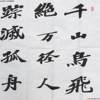 千山鳥飛
絶万径人
踪滅孤舟